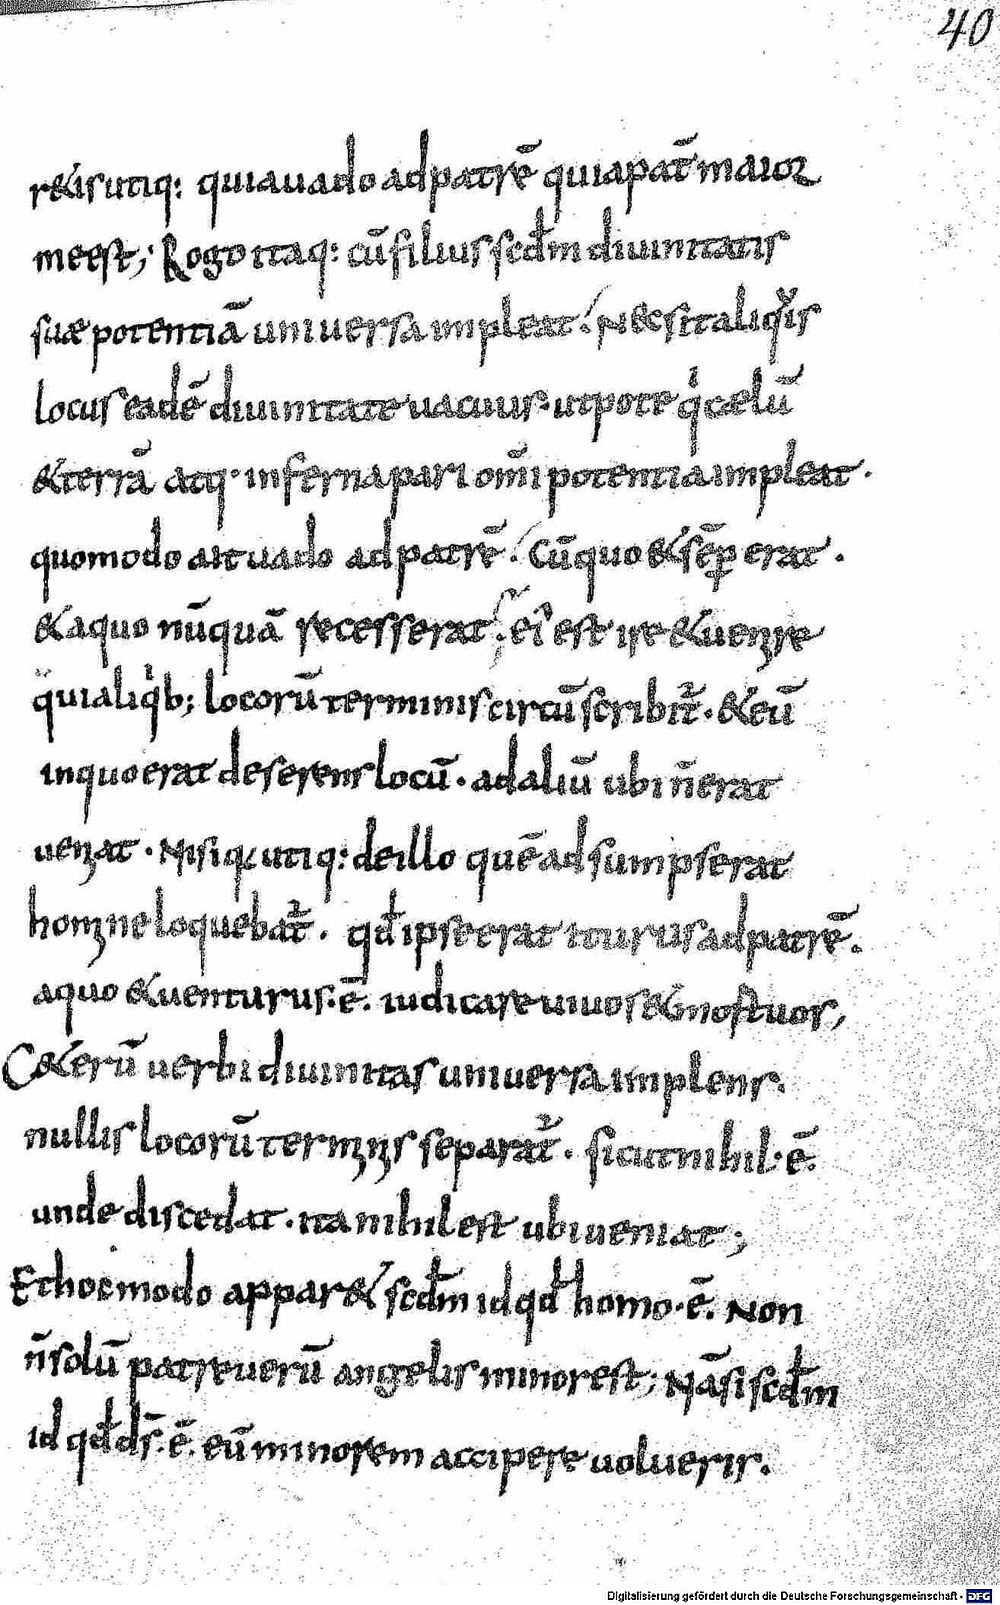 40
r&is utiq: quia uado ad patrē quia pat̄ maior
me est; Rogo itaq: cū filius scd̄m diuinitatis
suae potentiā uniuersa impleat. Nec sit aliq̆s
locus eadē diuinitate uacuus. utpote qͥ caelū
& terrā atq· inferna pari om̄ipotentia impleat.
quomodo ait uado ad patrē. Cū quo & sēp erat.
& a quo nūquā recesserat; ei est ire & uenire
qui aliqͥb; locorū terminis circūscribit̄. & eū
in quo erat deserens locū. ad aliū ubi n̄ erat
ueniat. Nisi q utiq: de illo quē adsumpserat
homine loquebat̄. qd̄ ipse erat iturus ad patrē.
a quo & uenturus. ē. iudicare uiuos & mortuos,
Cet&erū uerbi diuinitas uniuersa implens.
nullis locorū terminis separat̄. sicut nihil. ē.
unde discedat. ita nihil est ubi ueniat;
Et hoc modo appar& scd̄m id qd̄ homo. ē. Non
n̄ solū patre uerū angelis minor est; Nā si scd̄m
id qd̄ d̄s. ē. eū minorem accipere uolueris.
Digitalisierung gefördert durch die Deutsche Forschungsgemeinschaft - DFG